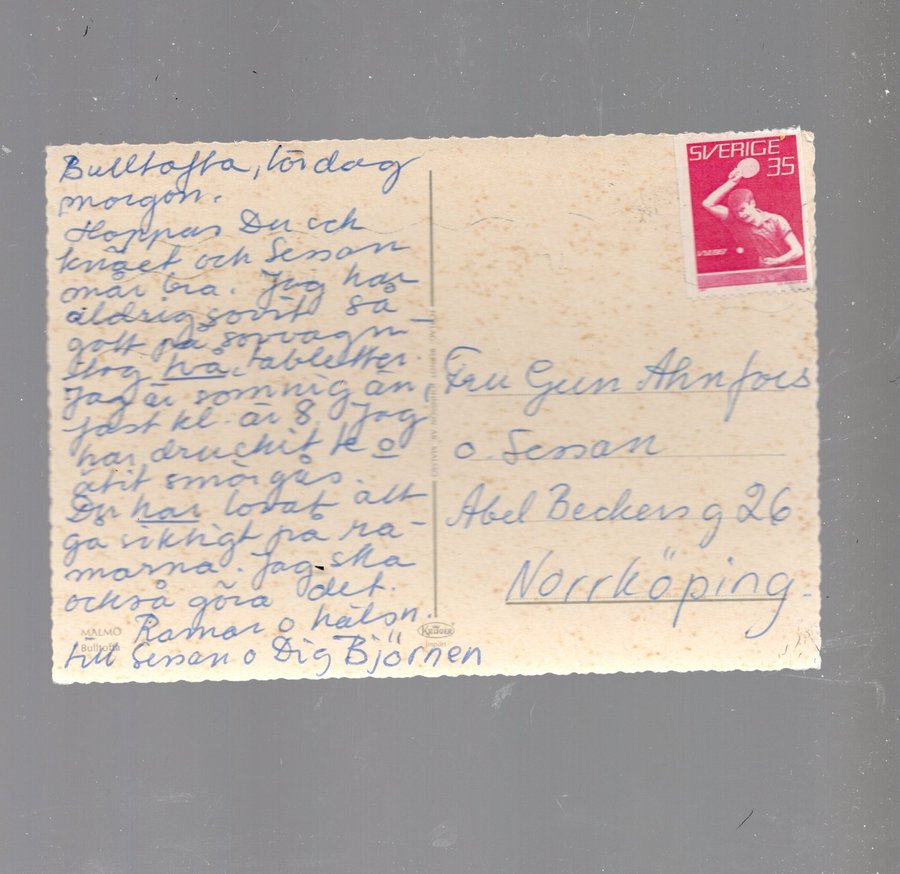 Bulltofta, lördag
morgon.
Hoppas Du och
knäet och Sessan
mår bra. Jag har
aldrig sovit så
gott på sovvagn –
tog två tabletter.
Jag är somnig än,
fast kl. är 8 Jag
har druckit te o
ätit smörgås.
Du har lovat att
gå viktigt på ra-
marna. Jag ska
också göra det.
Ramar o hälsn.
till Sessan o Dig Björnen
MALMÖ
Bulltofta
KRÜGER
Import
SVERIGE
35
Fru Gun Ahnfors
o. Sessan
Abel Beckers g 26
Norrköping.